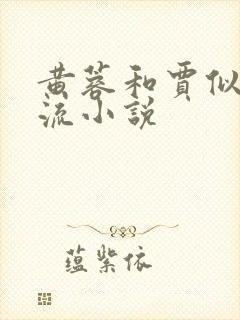 黄蓉和贾似
流小说
蕴紫依